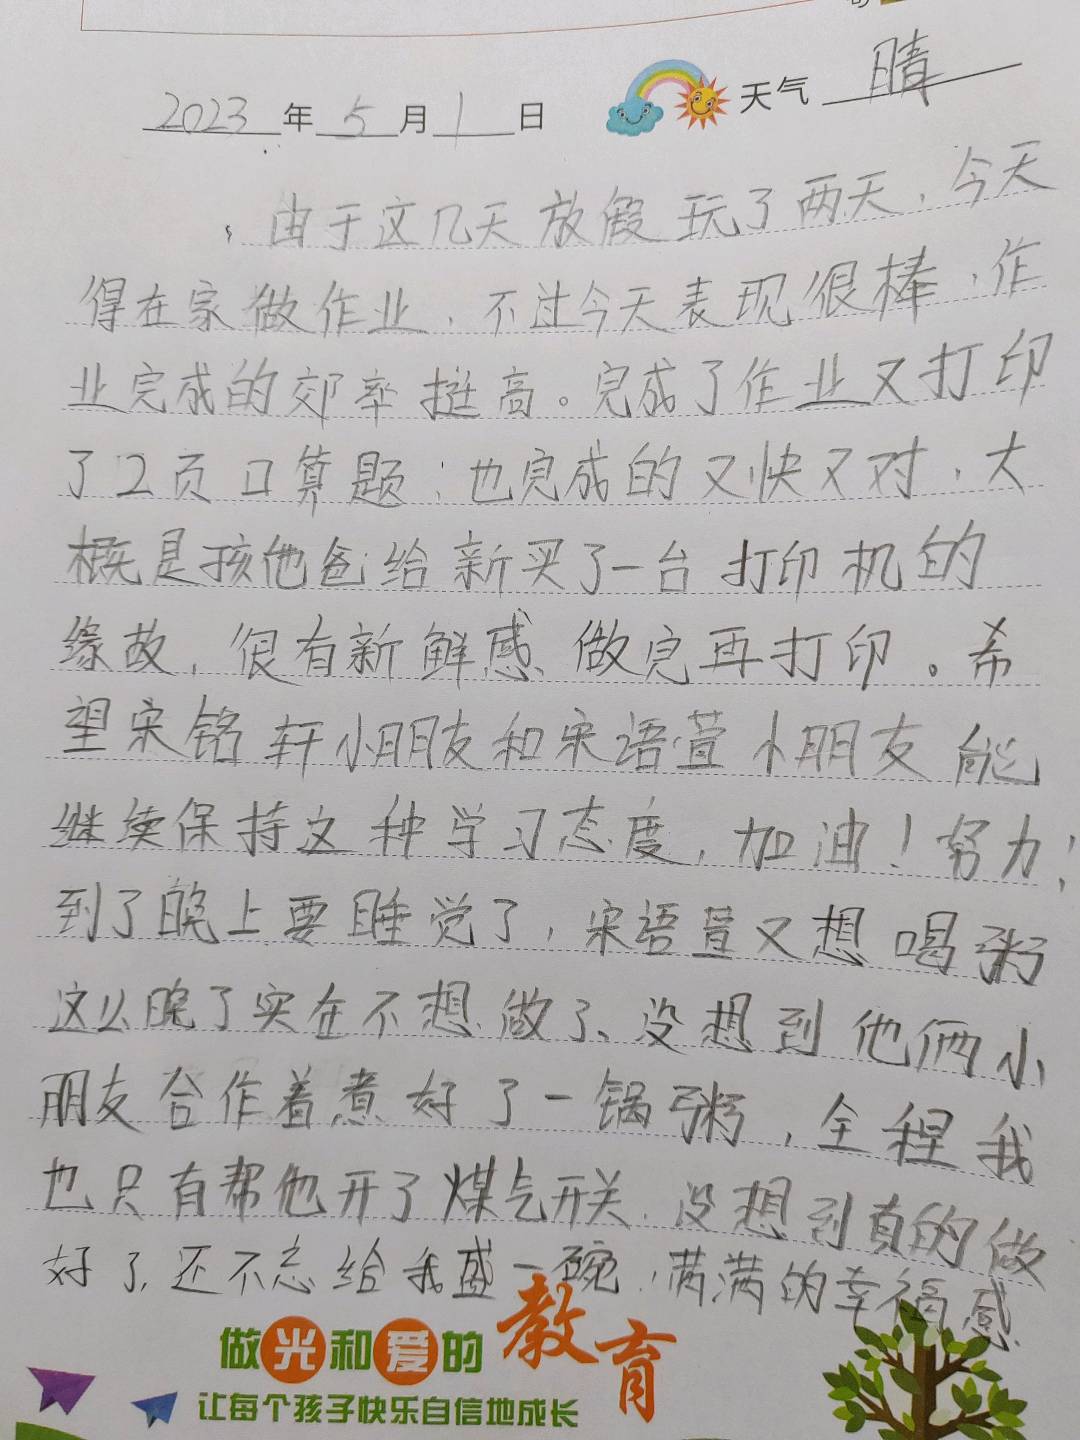 2023年5月1日 天气 晴
由于这几天放假玩了两天，今天
得在家做作业，不过今天表现很棒，作
业完成的效率挺高。完成了作业又打印
了12页口算题，也完成的又快又对，大
概是孩他爸给新买了一台打印机的
缘故，很有新鲜感、做完再打印。希
望宋铭轩小朋友和宋语萱小朋友能
继续保持这种学习态度，加油！努力！
到了晚上要睡觉了，宋语萱又想喝粥
这么晚了实在不想做了、没想到他俩小
朋友合作着煮好了一锅粥，全程我
也只有帮他开了煤气开关，没想到真的做
好了，还不忘给我盛一碗，满满的幸福感
做光和爱的教育
让每个孩子快乐自信地成长